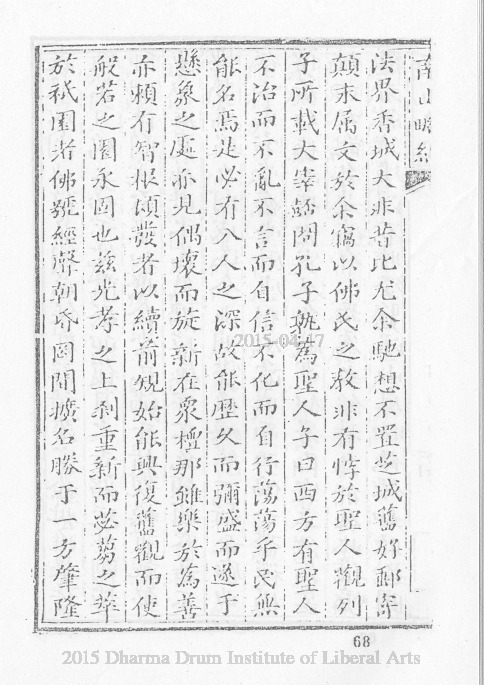 法界香城大非昔比尤余馳想不置芝城舊好郵寄
顛末属文於余竊以佛氏之教非有悖於聖人觀列
子所載大宰嚭問孔子孰為聖人子曰西方有聖人
不治而不亂不言而自信不化而自行蕩蕩乎民無
能名焉是必有入人之深故能歷久而彌盛而遂于
懸象之區亦見偶壞而旋新在衆檀那雖樂於為善
亦賴有智根頴發者以續前規始能興復舊觀而使
般若之圃永固也兹光孝之上刹重新而苾蒭之萃
於祇園者佛號經聲朝昏罔間擴名勝于一方肇隆
2015-04-17
68
2015 Dharma Drum Institute of Liberal Arts